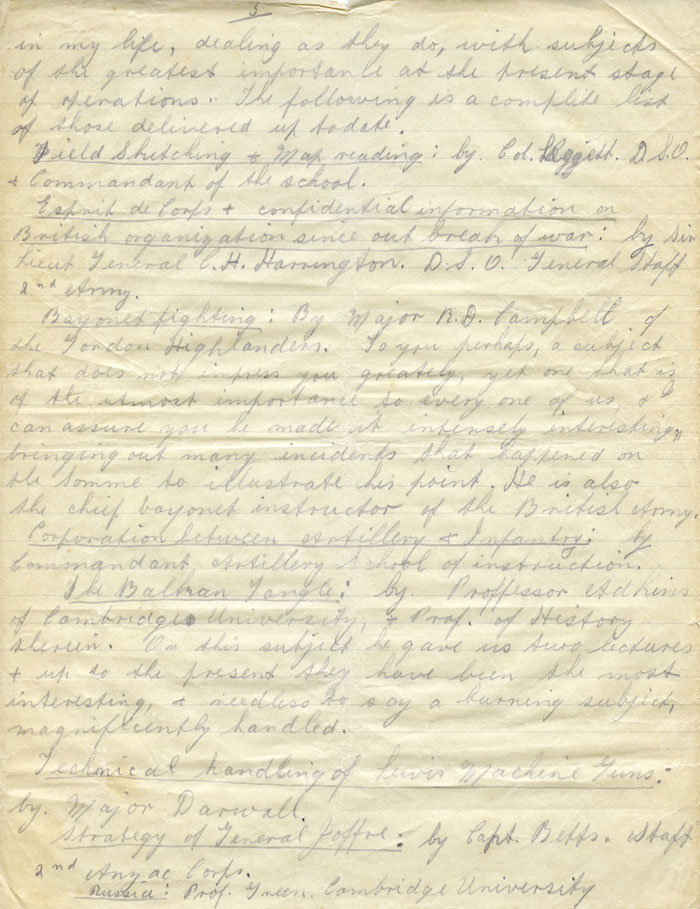 5
in my life, dealing as they do, with subjects
of the greatest importance at the present stage
of operations. The following is a complete list
of those delivered up todate.
Field Sketching + Map reading: by. Col. Leggett. D.S.O.
+ Commandant of the school.
Esprit de Corps + confidential information on
British organization since out break of war: by Sir
Lieut General C.H. Harrington. D.S.O. General Staff
2nd Army.
Bayonet fighting: By Major R.D. Campbell of
the Gordon Highlanders. To you perhaps, a subject
that does not impress you greately, yet one that is
of the utmost importance to every one of us, & I
can assure you he made it intensely interesting,
bringing out many incidents that happened on
the Somme to illustrate his point. He is also
the chief bayonet instructor of the British Army.
Corporation between Artillery + Infantry: by
Commandant, Artillery School of instruction.
The Balkan Tangle: by. Proffessor Adkins
of Cambridge University, + Prof. of History
therein. On this subject he gave us two lectures
+ up to the present they have been the most
interesting, + needless to say a burning subject,
magnificently handled.
Technical handling of Lewis Machine Guns:
by. Major Darwall.
Strategy of General Joffre: by Capt. Betts. Staff
2nd Anzac Corps.
Russia: Prof. Green. Cambridge University